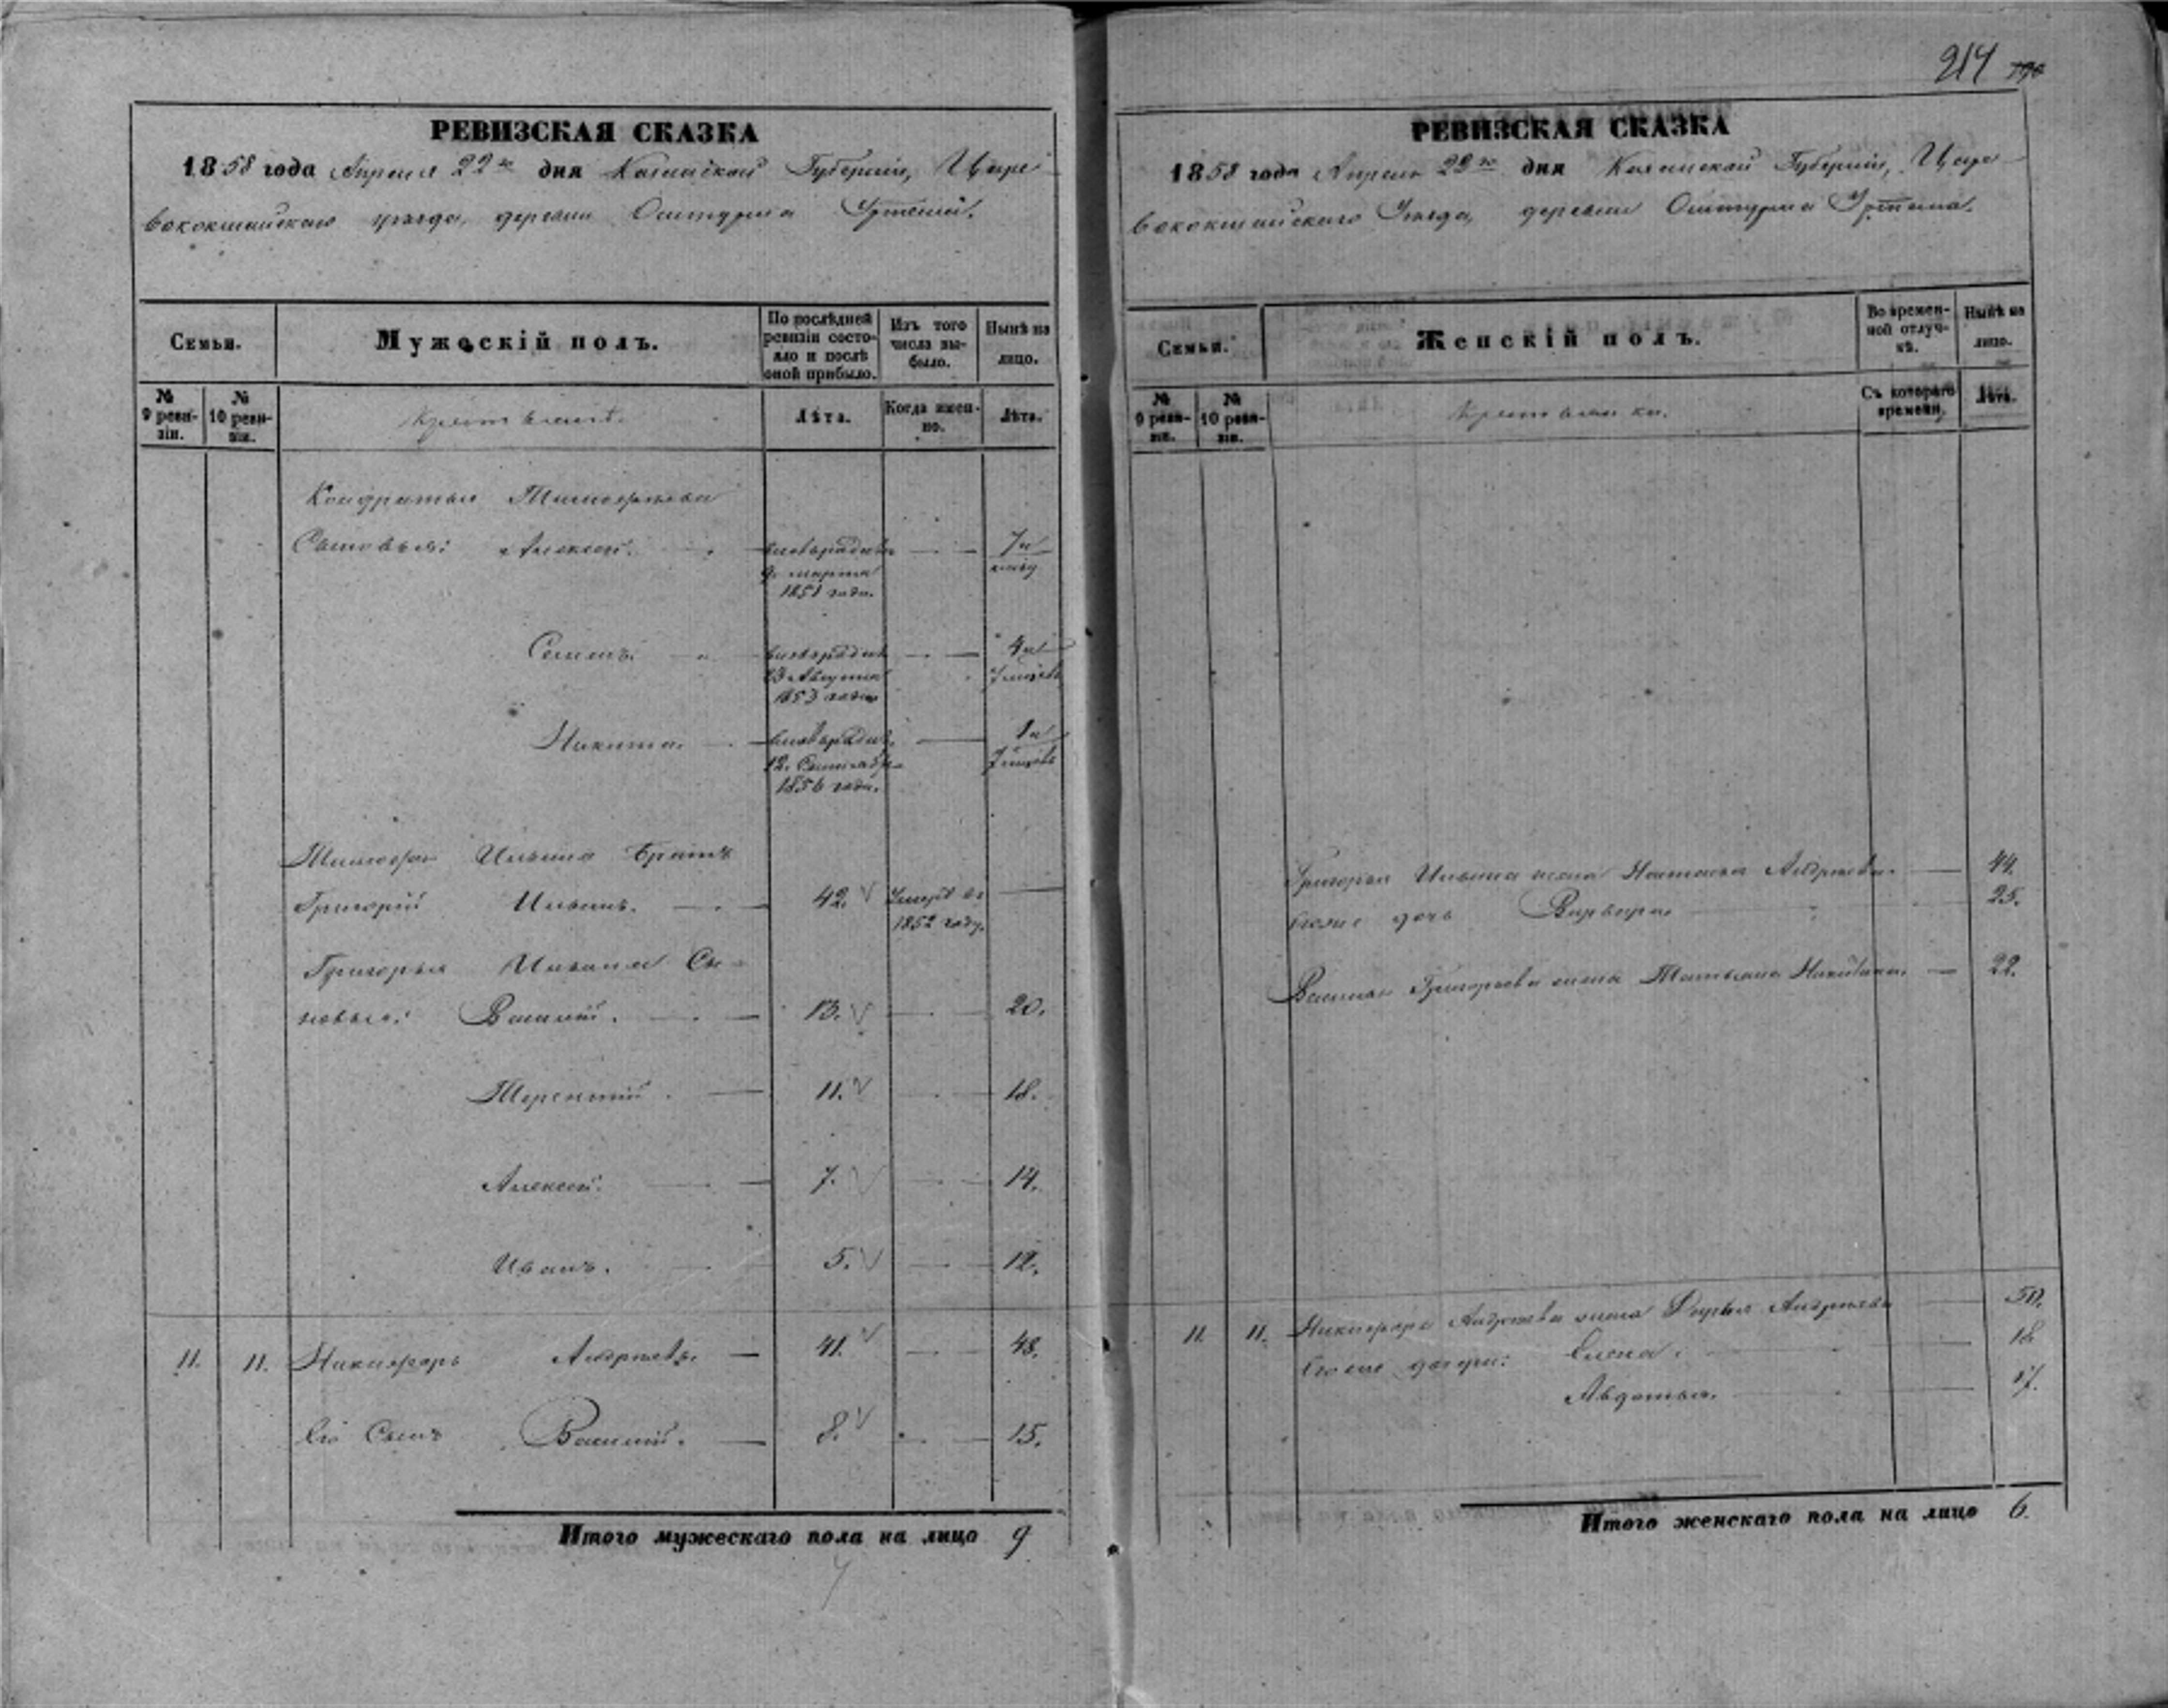 214
РЕВИЗСКАЯ СКАЗКА
1858 года Апреля 22го дня Казанской Губернiи, Царе
вококшайскаго уезда, деревни
Семьи.
Мужескiй полъ.
По послѣдней ревизiи состо-
яло и послѣ оной прибыло.
Изъ того числа вы-
было.
Нынѣ на лицо.
№ 9 реви-
зiи.
№ 10 реви-
зiи.
Крестьяне
Лѣта.
Когда имен-
но.
Лѣта.
Кондратья Тимофеева
Сыновья: Алексей. новорожден 7 и
9. марта
1851 года.
Семенъ новорожден 4 и
23 Августа 7 месяц
1853 года
Никита. новорожден 1 и
12. Сентября 7 месяц
1856 года.
Тимофея Ильина братъ
Григорiй Ильинъ. 42. Умеръ въ
1852 году.
Григорья Ильина Сы-
новья: Василiй. 13. 20.
Терентiй. 11. 18.
Алексей. 7. 14.
Иванъ. 5. 12.
11. 11. Никифоръ Андреевъ. 41. 48.
Его Сынъ Василiй. 8. 15.
Итого мужескаго пола на лицо 9
РЕВИЗСКАЯ СКАЗКА
1858 года Апреля 22го дня Казанской Губернiи, Царе
вококшайскаго Уезда, деревни
Семьи.
Женскiй полъ.
Во времен-
ной отлуч-
кѣ.
Нынѣ на лицо.
№ 9 реви-
зiи.
№ 10 реви-
зiи.
Крестьянки.
Съ котораго времени,
Лѣта.
Григорья Ильина жена Наталья Андреева. 44.
дочь Варвара 25.
Василья Григорьева жена Татьяна Никитина. 22.
11. 11. Никифора Андреева жена Дарья Андреева 50.
дочери: Елена. 18
Авдотья. 17.
Итого женскаго пола на лицо 6.